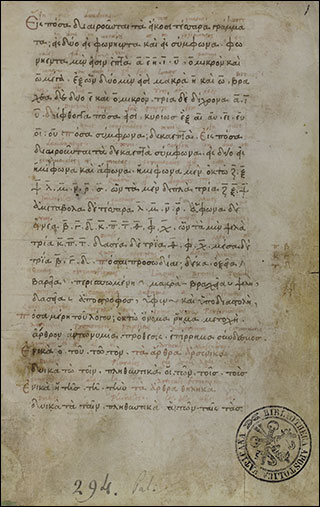 Εἰς πόσα διαιροῦνται τὰ εἰκοσιτέσσαρα γράμμα
τα; εἰς δύο εἰς φωνήεντα καὶ εἰς σύμφωνα. φω
νήεντα μέν εἰσιν ἑπτά α ε η ι υ ο μικρὸν καὶ
ω μέγα. ἐξ ὧν δύο μὲν εἰσὶ μακρὰ η καὶ ω. βρα
χέα δὲ δύο ε καὶ ο μικρόν. τρία δὲ δίχρονα α ι
υ. δίφθογγοι πόσαι εἰσὶ κυρίως ἓξ αι αυ ει ευ
οι ου πόσα σύμφωνα; δεκαεπτά. Εἰς πόσα
διαιροῦνται τὰ δεκαεπτὰ σύμφωνα. εἰς δύο εἰς
ἡμίφωνα καὶ ἄφωνα. ἡμίφωνα μὲν ὀκτὼ ζ ξ
ψ λ μ ν ρ σ. ὧν τὰ μὲν διπλᾶ τρία ζ ξ ψ
ἀμετάβολα δὲ τέσσαρα. λ. μ. ν. ρ. ἄφωνα δὲ
ἐννέα. β γ δ κ π τ θ φ χ. ὧν τὰ μὲν ψιλὰ
τρία κ. π. τ. δασέα δὲ τρία θ. φ. χ. μέσα δὲ
τρία β. γ. δ. πόσαι προσωδίαι; δέκα. ὀξεῖα
βαρεῖα περισπωμένη μακρὰ βραχεῖα ψιλὴ
δασεῖα ἀπόστροφος ὑφὲν καὶ ὑποδιαστολή
πόσα μέρη τοῦ λόγου; ὀκτώ ὄνομα ῥῆμα μετοχὴ
ἄρθρον ἀντωνυμία πρόθεσις ἐπίρρημα σύνδεσμος
Ἑνικὰ ὁ τοῦ τῷ τὸν τὰ ἄρθρα ἀρσενικὰ
δυϊκὰ τὼ τοῖν πληθυντικὰ οἱ τῶν τοῖς τοὺς
Ἑνικὰ ἡ τῆς τῇ τὴν τὰ ἄρθρα θηλυκὰ
δυϊκὰ τὰ ταῖν πληθυντικὰ αἱ τῶν ταῖς τὰς
294. Pal.
BIBLIOTHECA APOSTOLICA VATICANA